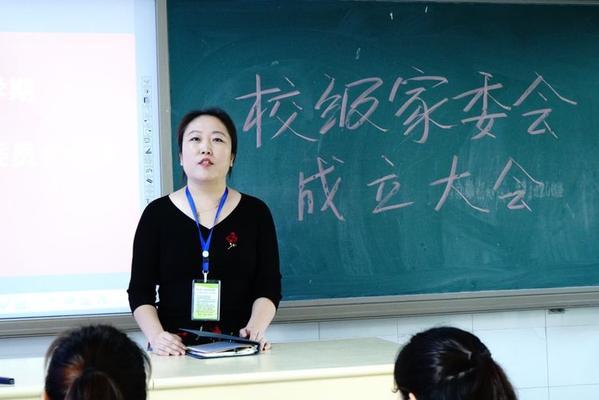 校级家委会
成立大会
学期